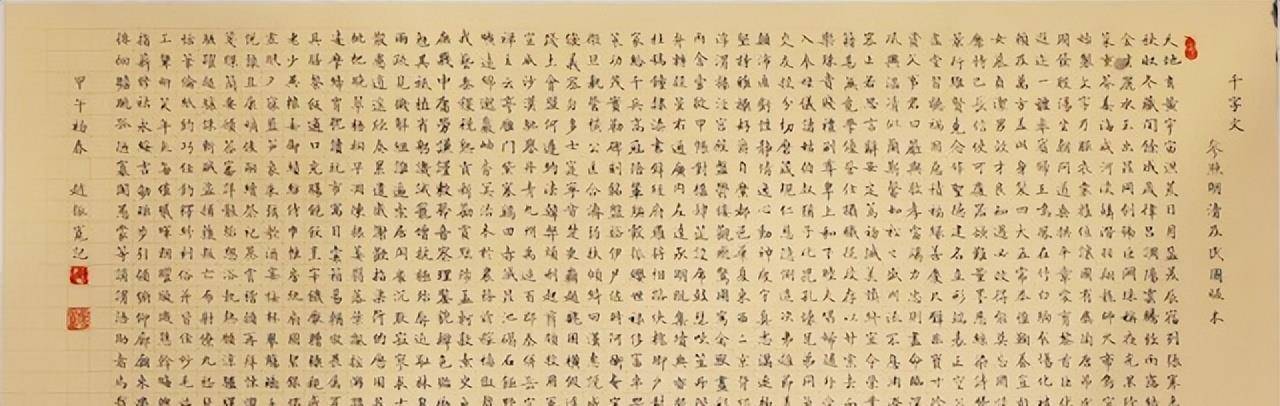 千字文
參照明清及民國版本
天地玄黃宇宙洪荒日月盈昃辰宿列張寒
秋收冬藏閏餘成歲律呂調陽雲騰致雨露
金生麗水玉出崑岡劍號巨闕珠稱夜光果
菜重芥薑海鹹河淡鱗潛羽翔龍師火帝鳥
始制文字乃服衣裳推位讓國有虞陶唐弔
周發商湯坐朝問道垂拱平章愛育黎首臣
遐邇一體率賓歸王鳴鳳在竹白駒食場化
賴及萬方蓋此身髮四大五常恭惟鞠養豈
女慕貞潔男效才良知過必改得能莫忘罔
靡恃己長信使可覆器欲難量墨悲絲染詩
景行維賢克念作聖德建名立形端表正空
虛堂習聽禍因惡積福緣善慶尺璧非寶寸
資父事君曰嚴與敬孝當竭力忠則盡命臨
夙興溫凊似蘭斯馨如松之盛川流不息淵
容止若思言辭安定篤初誠美慎終宜令榮
籍甚無竟學優登仕攝職從政存以甘棠去
樂殊貴賤禮別尊卑上和下睦夫唱婦隨外
入奉母儀諸姑伯叔猶子比兒孔懷兄弟同
交友投分切磨箴規仁慈隱惻造次弗離節
顛沛匪虧性靜情逸心動神疲守真志滿逐
堅持雅操好爵自縻都邑華夏東西二京背
丙舍傍啟甲帳對楹肆筵設席鼓瑟吹笙升
弁轉疑星右通廣內左達承明既集墳典亦
杜稿鍾隸漆書壁經府羅將相路俠槐卿戶
家給千兵高冠陪輦驅轂振纓世祿侈富車
策功茂實勒碑刻銘磻溪伊尹佐時阿衡奄
微旦孰營桓公匡合濟弱扶傾綺回漢惠說
俊乂密勿多士寔寧晉楚更霸趙魏困橫假
踐土會盟何遵約法韓弊煩刑起翦頗牧用
宣威沙漠馳譽丹青九州禹跡百郡秦并嶽
禪主云亭雁門紫塞雞田赤城昆池碣石鉅
曠遠綿邈巖岫杳冥治本於農務茲稼穡俶
我藝黍稷稅熟貢新勸賞黜陟孟軻敦素史
庶幾中庸勞謙謹敕聆音察理鑑貌辨色貽
勉其祗植省躬譏誡寵增抗極殆辱近恥林
兩疏見機解組誰逼索居閒處沉默寂寥求
散慮逍遙欣奏累遣慼謝歡招渠荷的歷園
枇杷晚翠梧桐早凋陳根委翳落葉飄颻遊
凌摩絳霄耽讀翫市寓目囊箱易輶攸畏屬
具膳餐飯適口充腸飽飫烹宰飢厭糟糠親
老少異糧妾御績紡侍巾帷房紈扇圓潔銀
晝眠夕寐藍筍象床弦歌酒宴接杯舉觴矯
悅豫且康嫡後嗣續祭祀烝嘗稽顙再拜悚
箋牒簡要顧答審詳骸垢想浴執熱願涼驢
駭躍超驤誅斬賊盜捕獲叛亡布射僚丸嵇
恬筆倫紙鈞巧任釣釋紛利俗並皆佳妙毛
工顰妍笑年矢每催曦暉朗曜璇璣懸斡晦
指薪修祜永綏吉劭矩步引領俯仰廊廟束
徘徊瞻眺孤陋寡聞愚蒙等誚謂語助者焉
甲午初春 趙